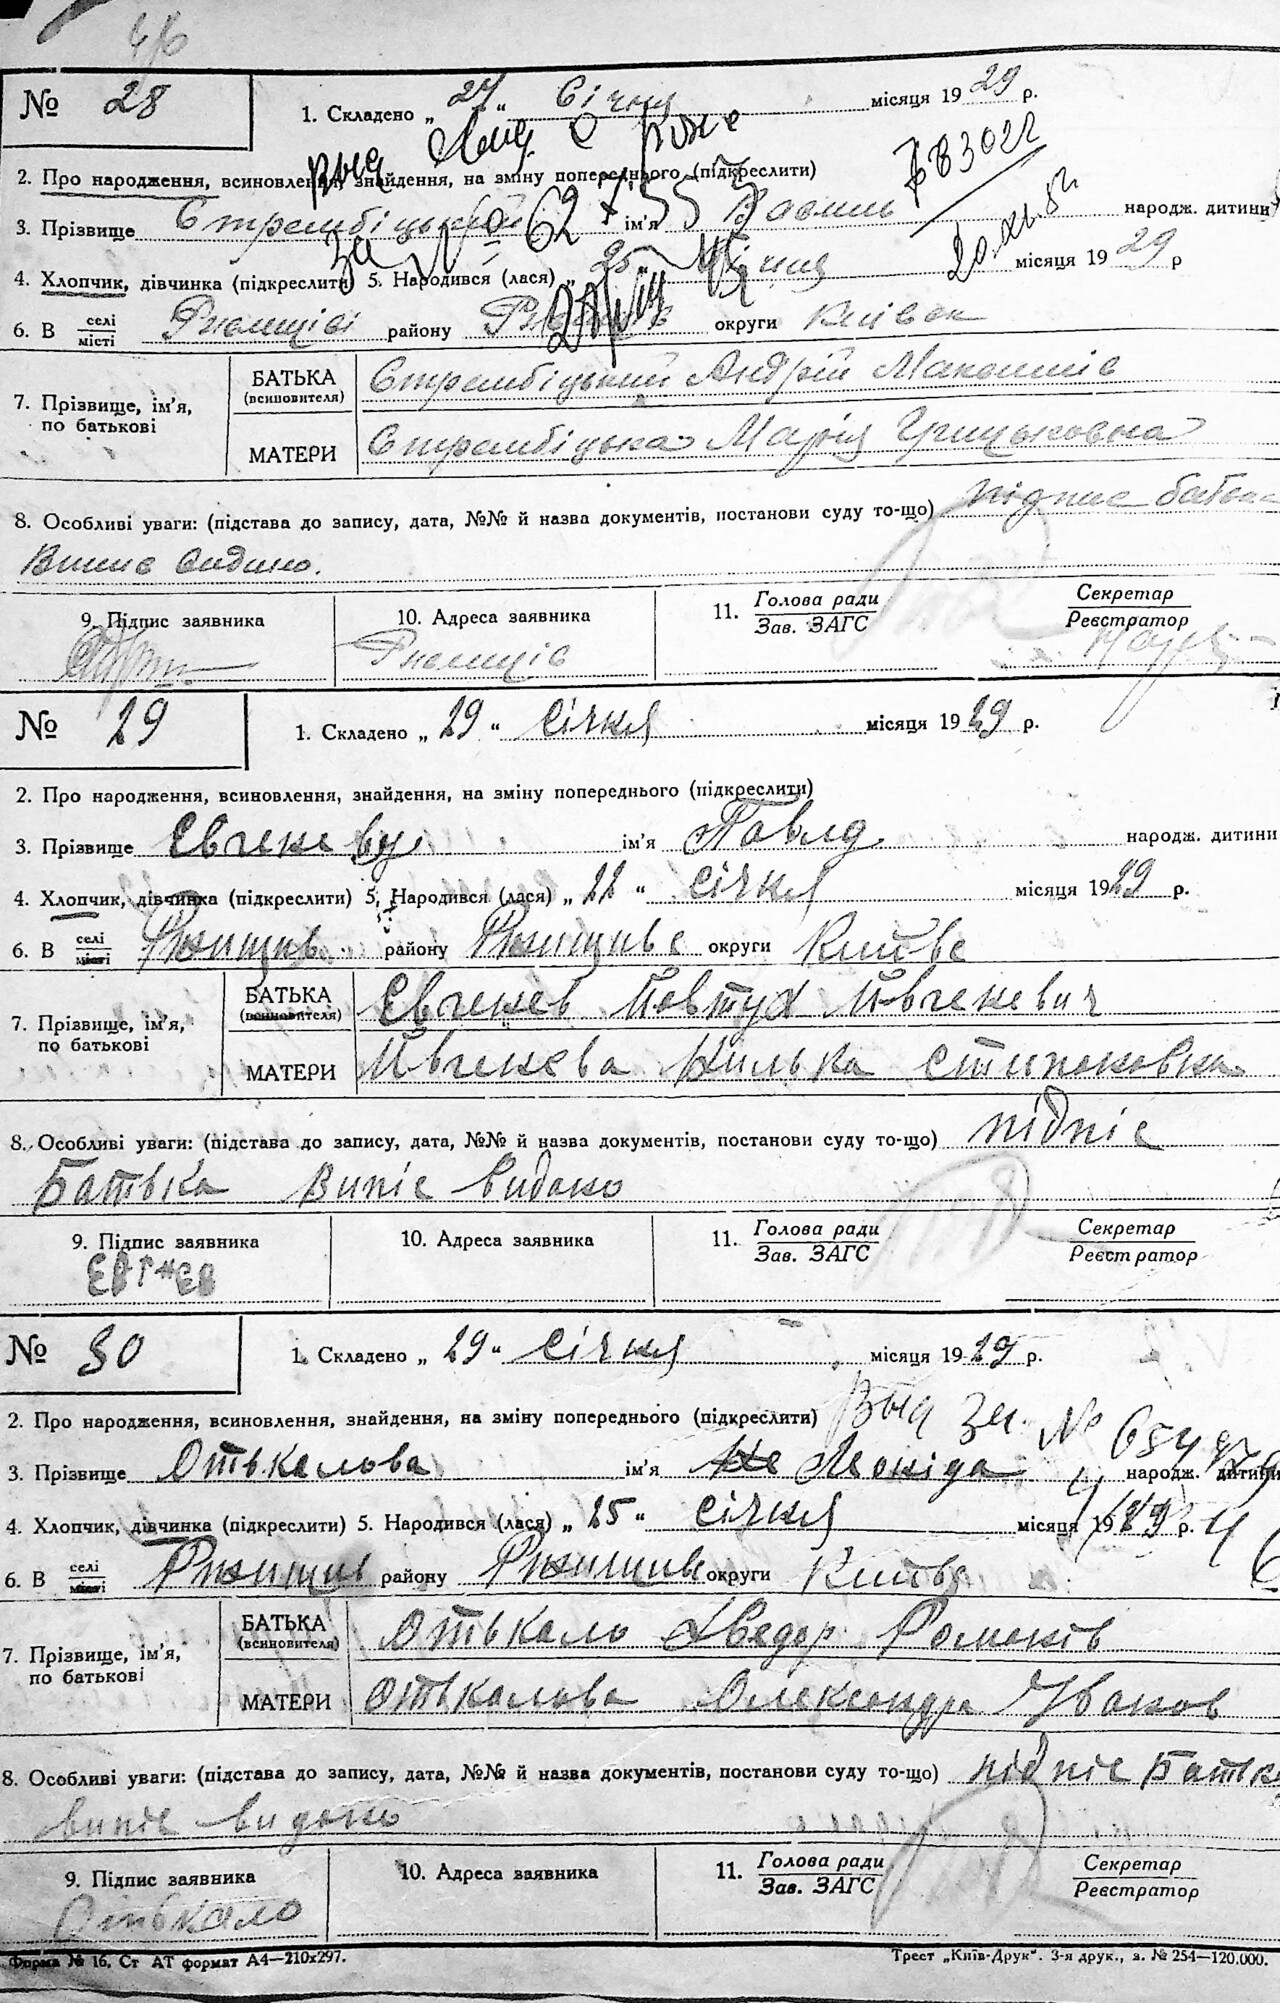 № 28
1. Складено „ 27 “ Січня місяця 1929 р.
2. Про народження, всиновлення, знайдення, на зміну попереднього (підкреслити)
№ 62 555
20.XI.82
3. Прізвище Стрембіцький ім'я Василь народж. дитини
4. Хлопчик, дівчинка (підкреслити) 5. Народився (лася) „ 25 “ Січня місяця 1929 р
6. В селі місті Ржищіві району округи Київськ
7. Прізвище, ім'я, по батькові
БАТЬКА (всиновителя) Стрембіцький Андрій
МАТЕРИ Стрембіцька Марія Грицьковна
8. Особливі уваги: (підстава до запису, дата, №№ й назва документів, постанови суду то-що) підпис батька
Випис видано.
9. Підпис заявника 10. Адреса заявника 11. Голова ради Зав. ЗАГС Секретар Реєстратор
Ржищів
№ 29
1. Складено „ 29 “ Січня місяця 1929 р.
2. Про народження, всиновлення, знайдення, на зміну попереднього (підкреслити)
3. Прізвище Євгенєву ім'я Павло народж. дитини
4. Хлопчик, дівчинка (підкреслити) 5. Народився (лася) „ 22 “ січня місяця 1929 р.
6. В селі місті Ржищив району Ржищивс округи Київс
7. Прізвище, ім'я, по батькові
БАТЬКА (всиновителя) Євгенєв Йовтух Йвгеневич
МАТЕРИ Йвгенєва Степоновна
8. Особливі уваги: (підстава до запису, дата, №№ й назва документів, постанови суду то-що) підпіс
Батька Випіс видано
9. Підпис заявника 10. Адреса заявника 11. Голова ради Зав. ЗАГС Секретар Реєстратор
№ 30
1. Складено „ 29 “ Січня місяця 1929 р.
2. Про народження, всиновлення, знайдення, на зміну попереднього (підкреслити) Выд №
3. Прізвище Отькалова ім'я Леоніда народж. дитини
4. Хлопчик, дівчинка (підкреслити) 5. Народився (лася) „ 25 “ січня місяця 1929 р.
6. В селі місті Ржищив району Ржищивс округи Київс
7. Прізвище, ім'я, по батькові
БАТЬКА (всиновителя) Отькало Хведор Романів
МАТЕРИ Отькалова Олександра Йванов
8. Особливі уваги: (підстава до запису, дата, №№ й назва документів, постанови суду то-що) підпіс Батька
випіс видано
9. Підпис заявника 10. Адреса заявника 11. Голова ради Зав. ЗАГС Секретар Реєстратор
Отькало
Форма № 16, Ст АТ формат А4—210х297. Трест „Київ-Друк“. 3-я друк., з. № 254—120.000.